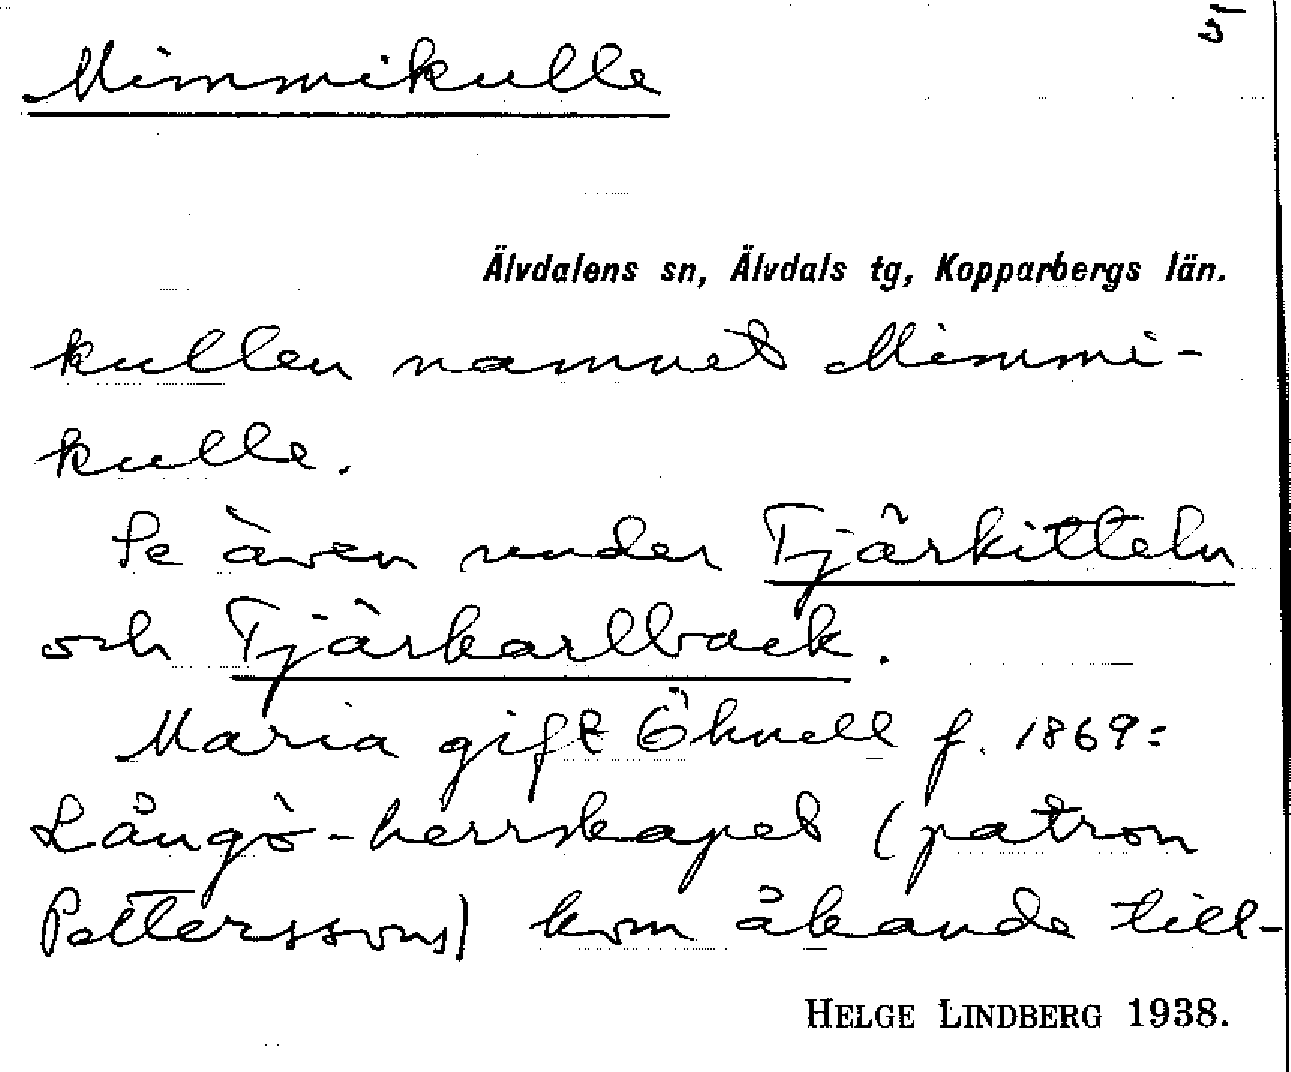 Mimmikulle
Älvdalens sn, Älvdals tg, Kopparbergs län.
kullen namnet Mimmi-
kulle.
Se även under Tjärkitteln
och Tjärkarlback.
Maria gift Öhnell f. 1869:
Långö-herrskapet (patron
Petterssons) kom åkande till-
HELGE LINDBERG 1938.